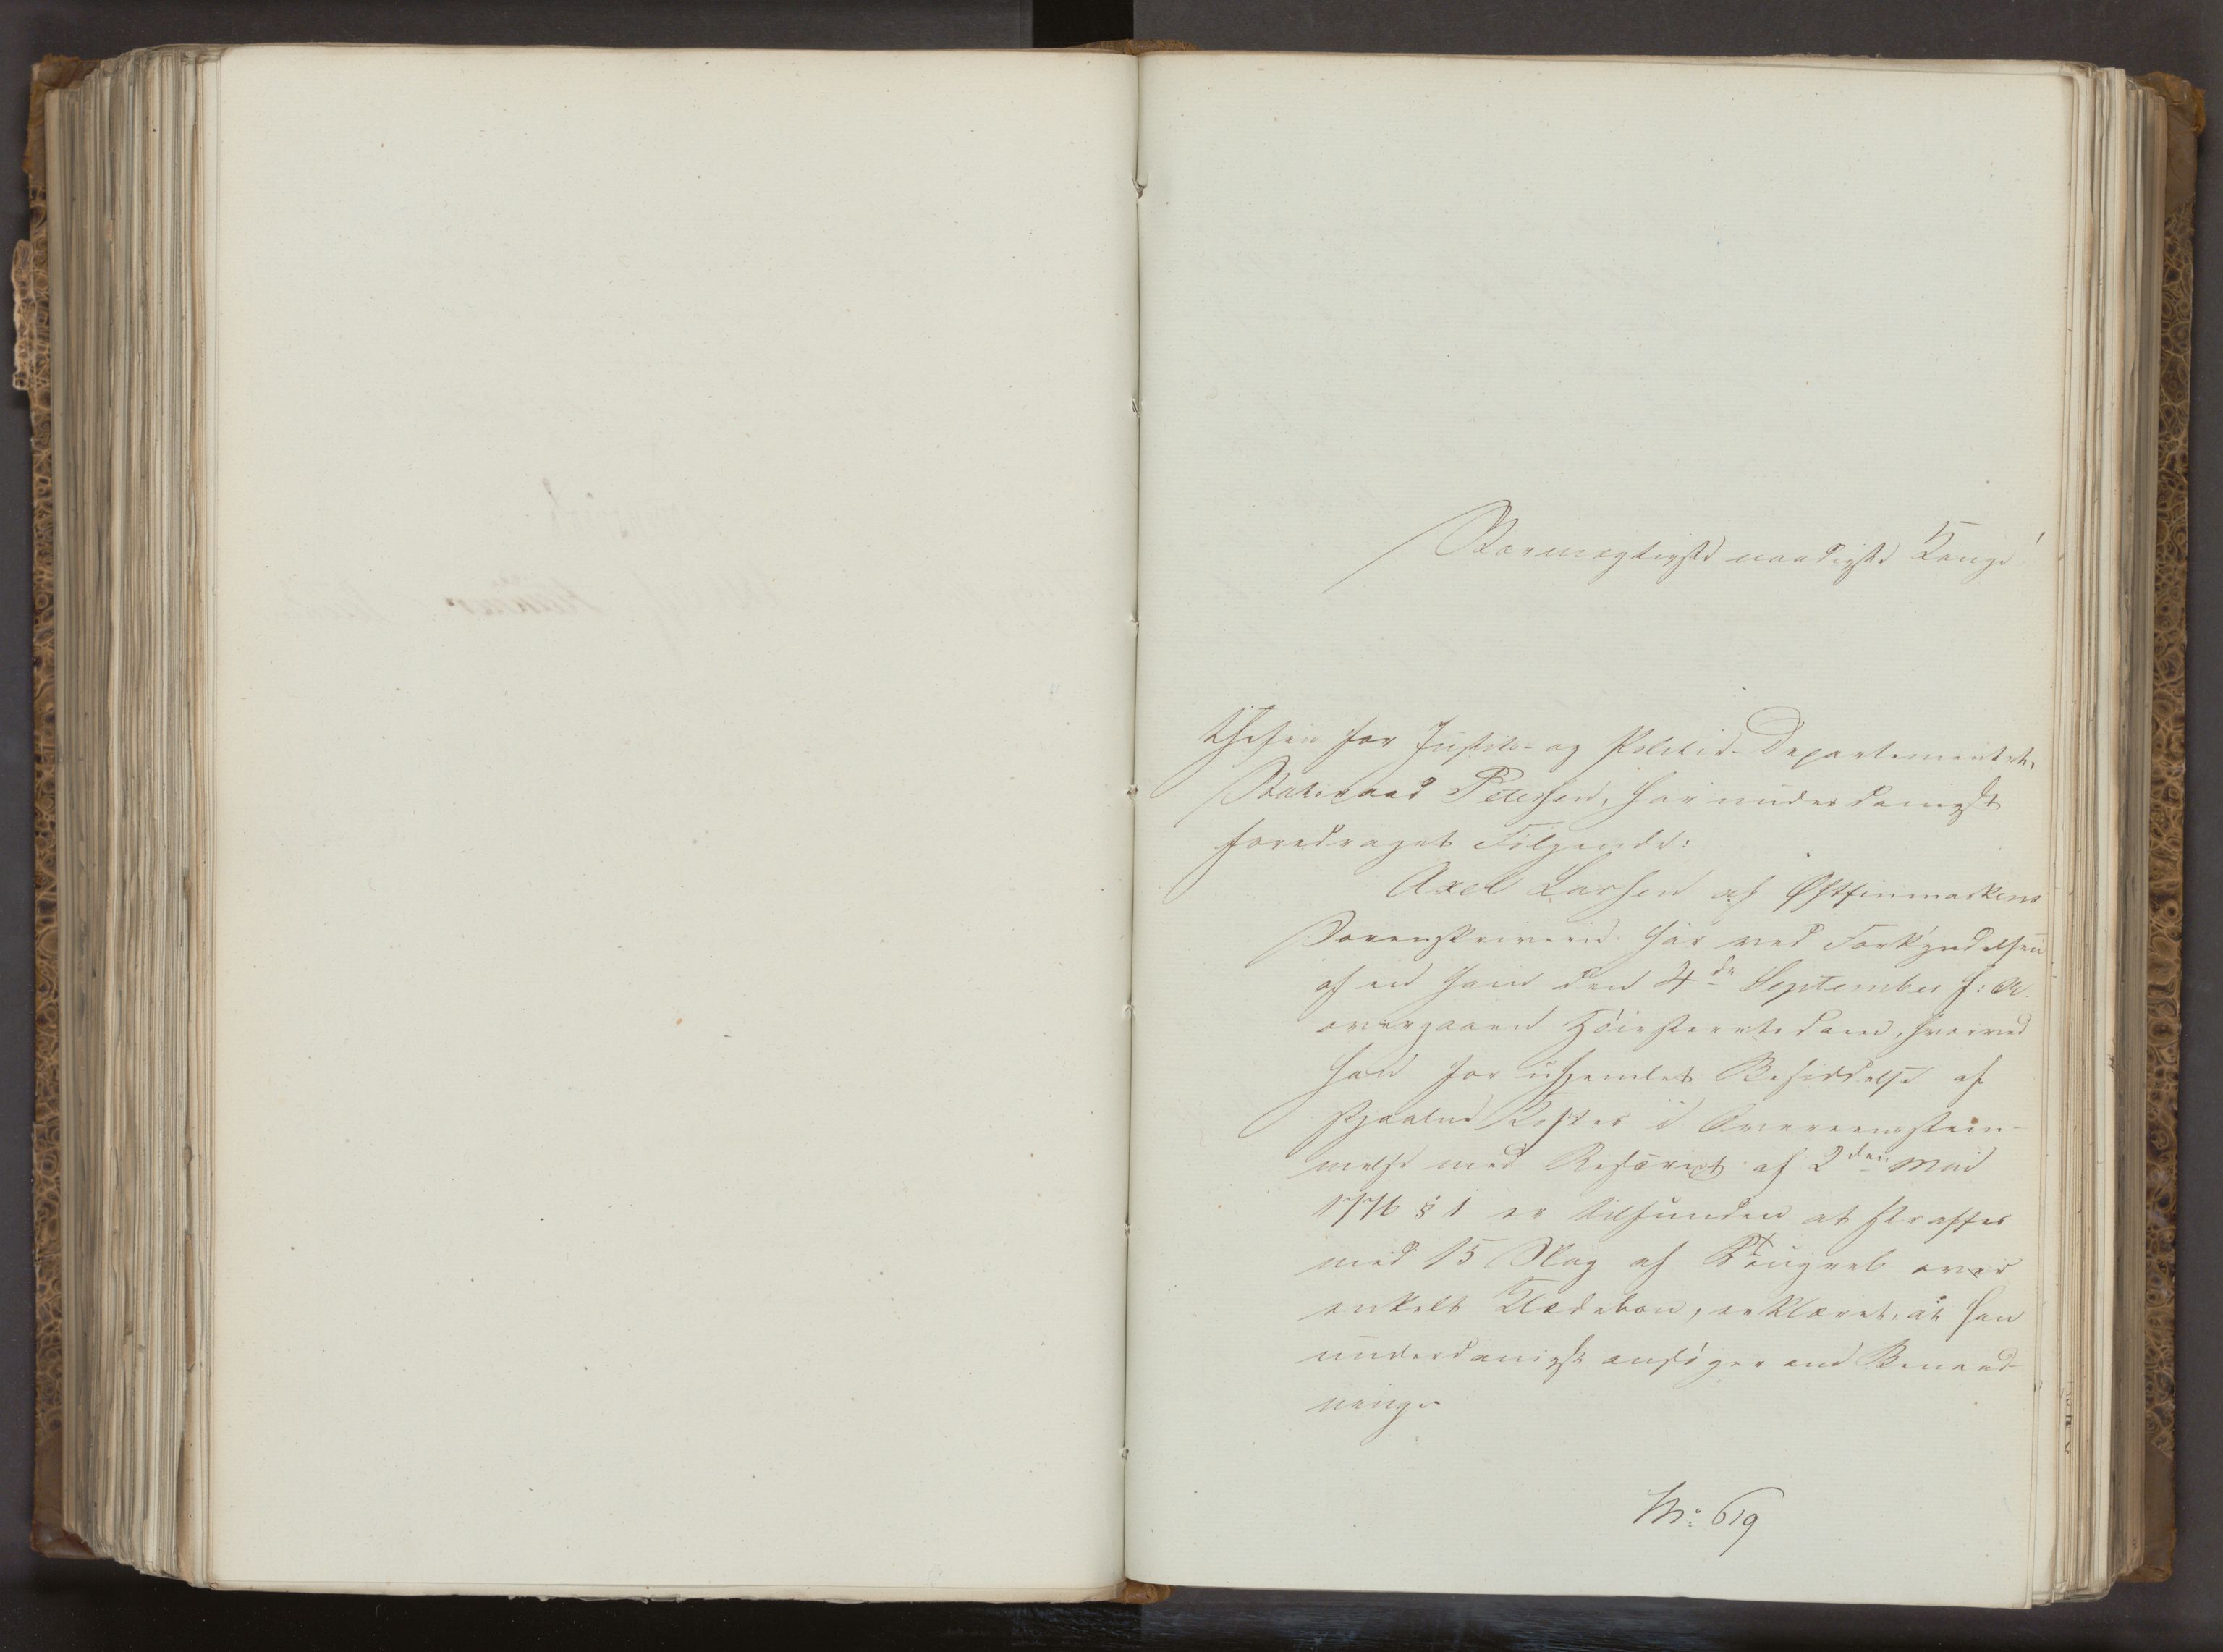 Stormægtigste naadigste Konge!
Chefen for Justits- og Politie-Departementet,
Statsraad Petersen, har underdanigst
foredraget Følgende:
Axel Larsen af Østfinmarkens
Sorenskriverie har ved Forkyndelsen
af en ham den 4de September f: A.
overgaaen Høiesteretsdom, hvorved
han for uhjemlet Besiddelse af
stjaalne Koster i Overeensstem-
melse med Rescript af 2den Mai
1776 § 1 er tilfunden at straffes
med 15 Slag af Tougreb over
enkelt Klædebon, erklæret, at han
underdanigst ansøger om Benaad-
ning.
No: 619